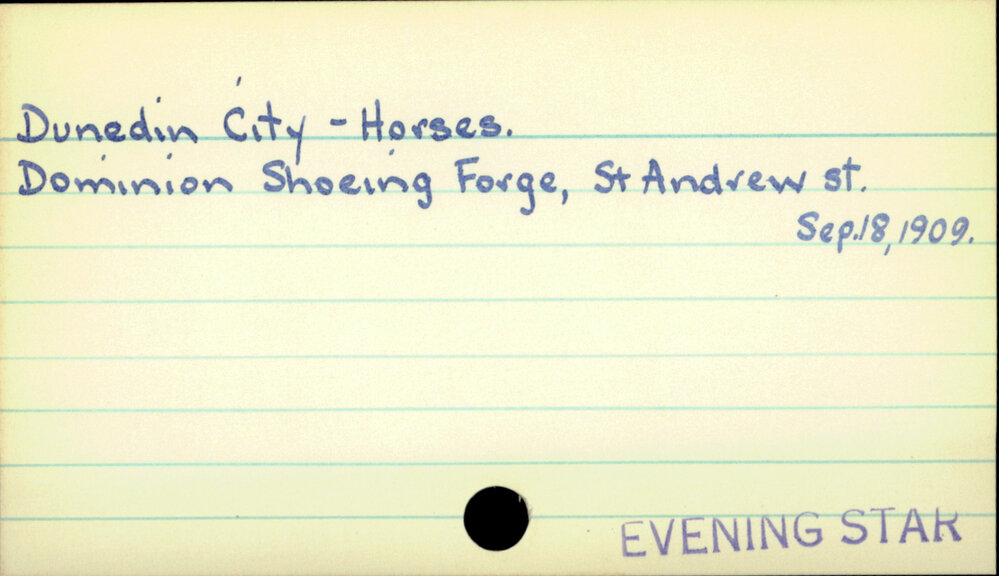 Dunedin City - Horses.
Dominion Shoeing Forge, St Andrew st.
Sep.18,1909.
EVENING STAR